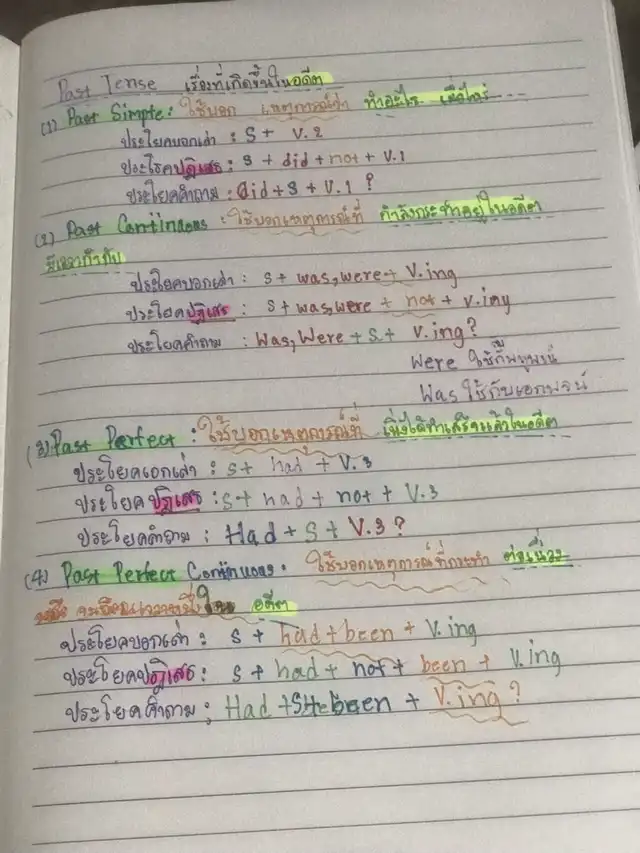 Past Tense เรื่องที่เกิดขึ้นในอดีต
(1) Past Simple : ใช้บอก เหตุการณ์ว่า ทำอะไร เมื่อไหร่
ประโยคบอกเล่า : S + V.2
ประโยคปฏิเสธ : S + did + not + V.1
ประโยคคำถาม : Did + S + V.1 ?
(2) Past Continuous : ใช้บอกเหตุการณ์ที่ กำลังกระทำอยู่ในอดีต
มีเวลากำกับ
ประโยคบอกเล่า : S + was, were + V.ing
ประโยคปฏิเสธ : S + was, were + not + V.ing
ประโยคคำถาม : Was, Were + S + V.ing ?
Were ใช้กับพหูพจน์
Was ใช้กับเอกพจน์
(3) Past Perfect : ใช้บอกเหตุการณ์ที่ เพิ่งได้ทำเสร็จแล้วในอดีต
ประโยคบอกเล่า : S + had + V.3
ประโยคปฏิเสธ : S + had + not + V.3
ประโยคคำถาม : Had + S + V.3 ?
(4) Past Perfect Continuous : ใช้บอกเหตุการณ์ที่กระทำ ต่อเนื่อง
อดีต
ประโยคบอกเล่า : S + had + been + V.ing
ประโยคปฏิเสธ : S + had + not + been + V.ing
ประโยคคำถาม : Had + S + been + V.ing ?